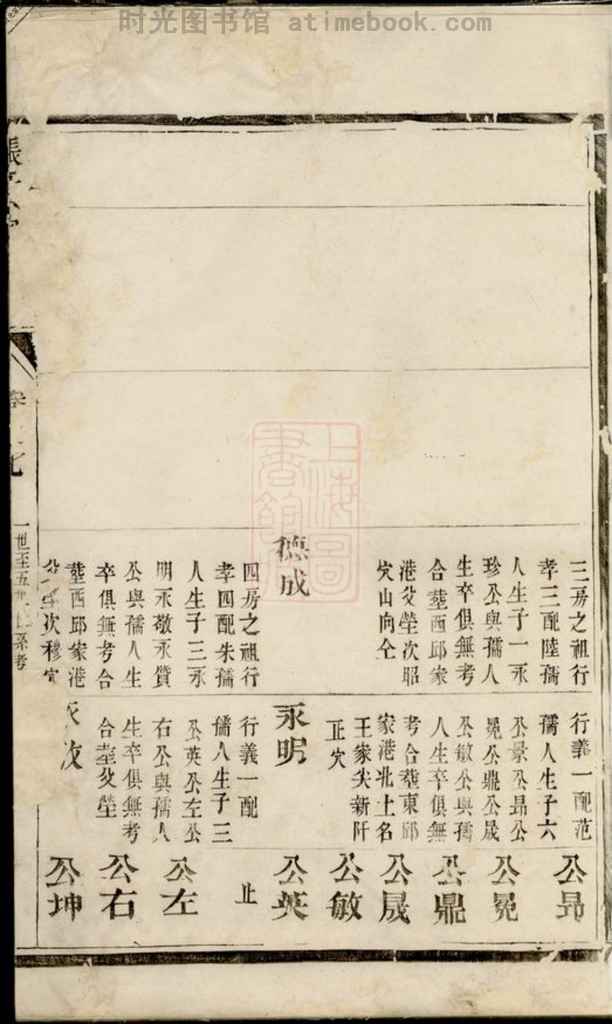 时光图书馆 atimebook.com
三房之祖行
孝三配陸孺
人生子一永
珍公與孺人
生卒俱無考
合塟西邱家
港父塋次昭
穴山向仝
德成
四房之祖行
孝四配朱孺
人生子三永
明永敬永贊
公與孺人生
卒俱無考合
塟西邱家港
次穆穴
行義一配范
孺人生子六
公景公昻公
冕公鼎公晟
公敏公與孺
人生卒俱無
考合塟東邱
家港北土名
王家尖新阡
正穴
永明
行義一配
孺人生子三
公英公左公
右公與孺人
生卒俱無考
合塟父塋
公昻
公冕
公鼎
公晟
公敏
公英
止
公左
公右
公坤
一世至五世
系考
上海圖書館